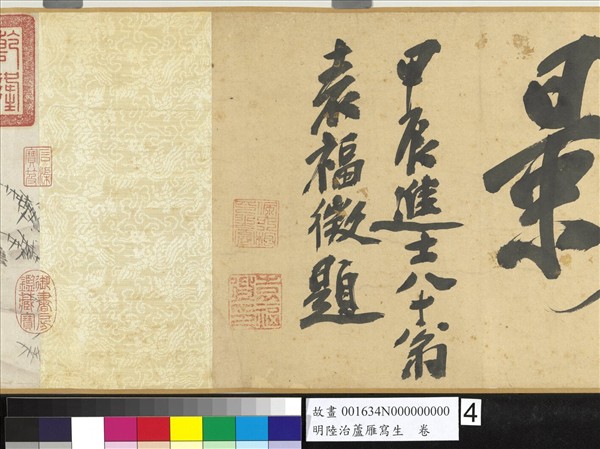 甲辰進士八十翁
袁福徵題
乾隆
石渠寶笈
御書房鑑藏寶
故畫 001634N000000000
明陸治蘆雁寫生 卷
4